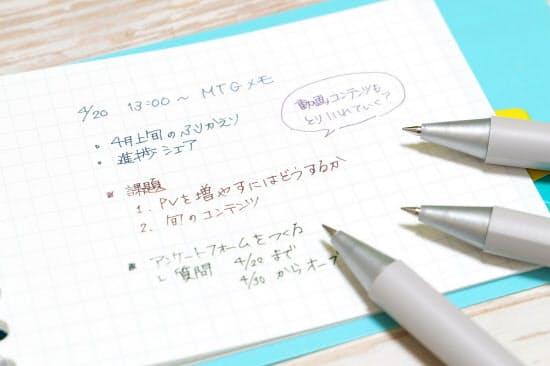 4/20 13:00～ MTGメモ
・4月上旬のふりかえり
・進捗シェア
動画コンテンツも
とりいれていく?
※ 課題
1. PVを増やすにはどうするか
2. 旬のコンテンツ
※ アンケートフォームをつくる
↳ 質問 4/20 まで
4/30 からオープ